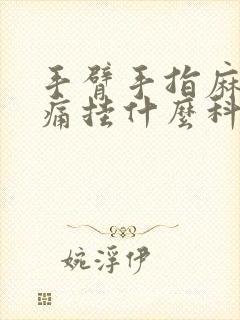 手臂手指麻
痛挂什麼科
婉浮伊